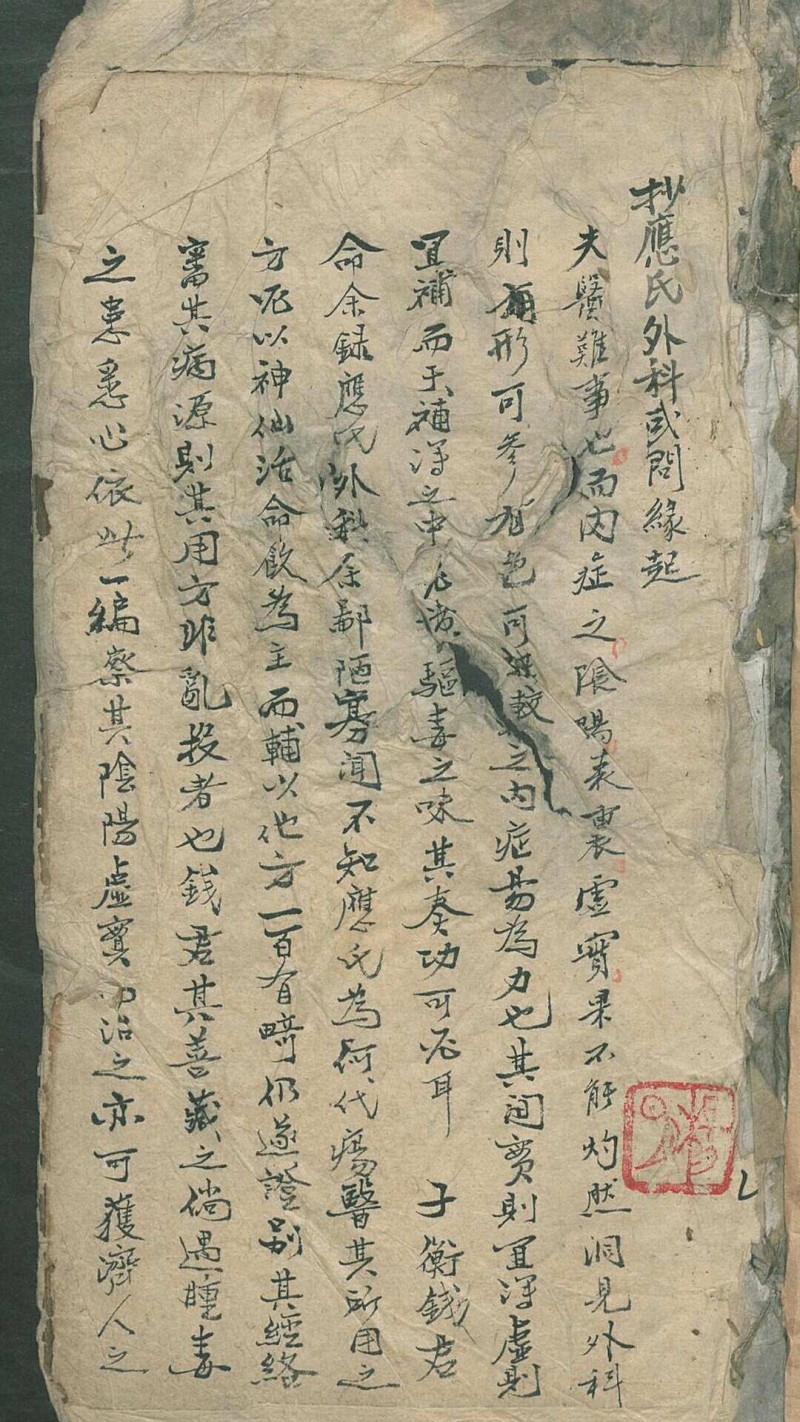 抄應氏外科或問緣起
夫醫難事也而內症之陰陽表裏虛實果不能灼然洞見外科
則有形可參有色可選較之內症易為力也其間實則宜瀉虛則
宜補而于補瀉之中驅毒之味其奏功可必耳 子衡錢君
命余録應氏外科余鄙陋寡聞不知應氏為何代瘍醫其所用之
方必以神仙活命飲為主而輔以他方一百有畸仍逐證別其經絡
審其病源則其用方非亂投者也錢君其善藏之倘遇腫毒
之患悉心依此一編察其陰陽虛實而治之亦可獲濟人之